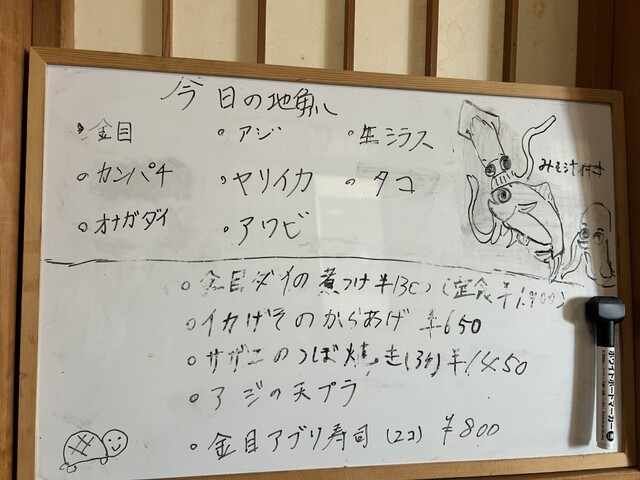 今日の地魚
金目 ・アジ ・生シラス
・カンパチ ・ヤリイカ ・タコ
・オナガダイ ・アワビ
みそ汁付き
・金目ダイの煮つけ (定食
・イカげそのからあげ ¥650
・サザエのつぼ焼き(3ケ) ¥1450
・アジの天プラ
・金目アブリ寿司(2コ) ¥800
ホワイトボードマーカー